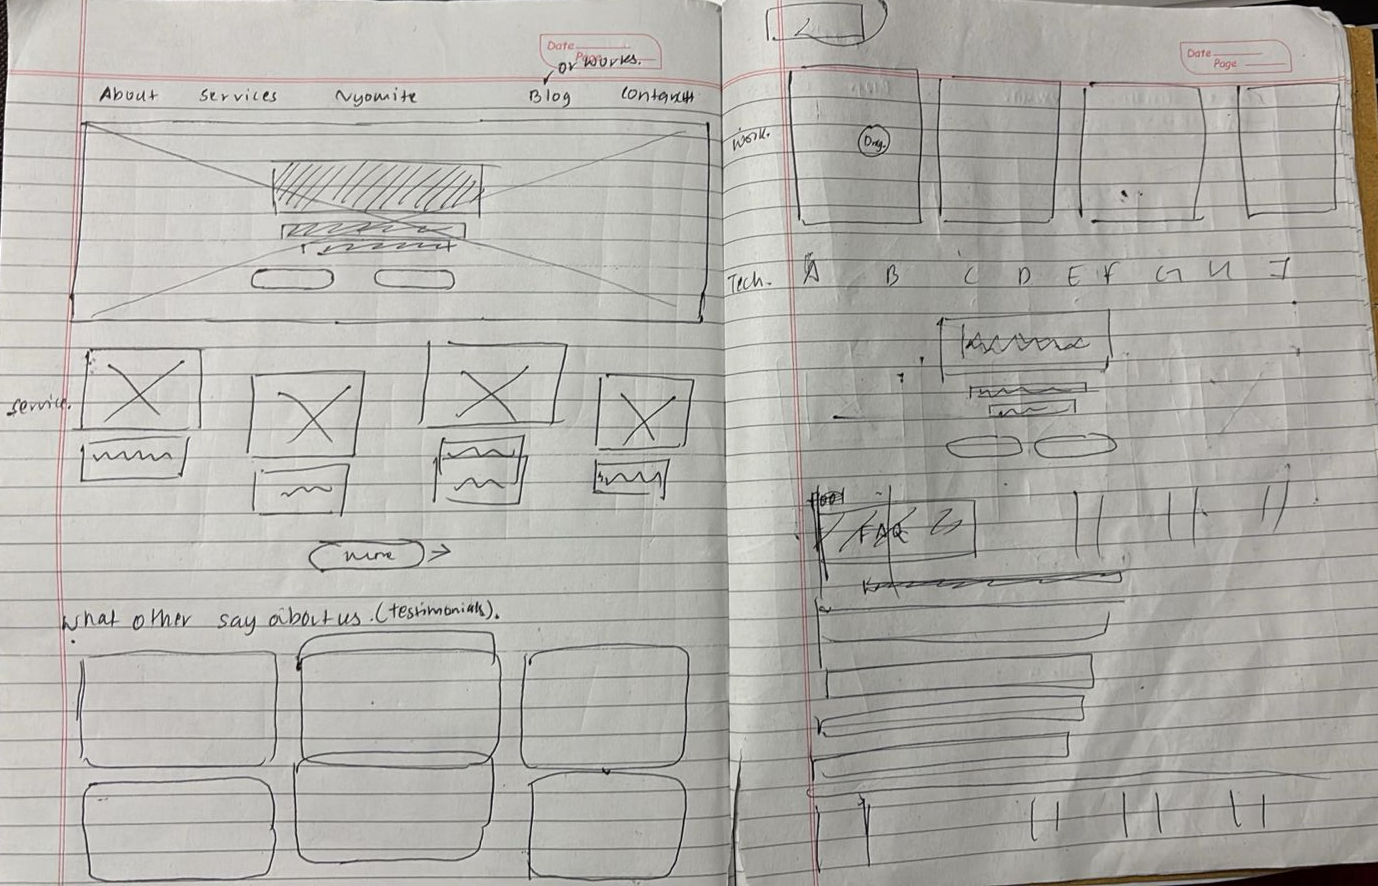 Date
Page
or works.
About Services Nyomite Blog Contact
Service.
more
what other say about us. (testimonials).
Date
Page
Work.
Drag.
Tech. A B C D E F G H I
FAQ